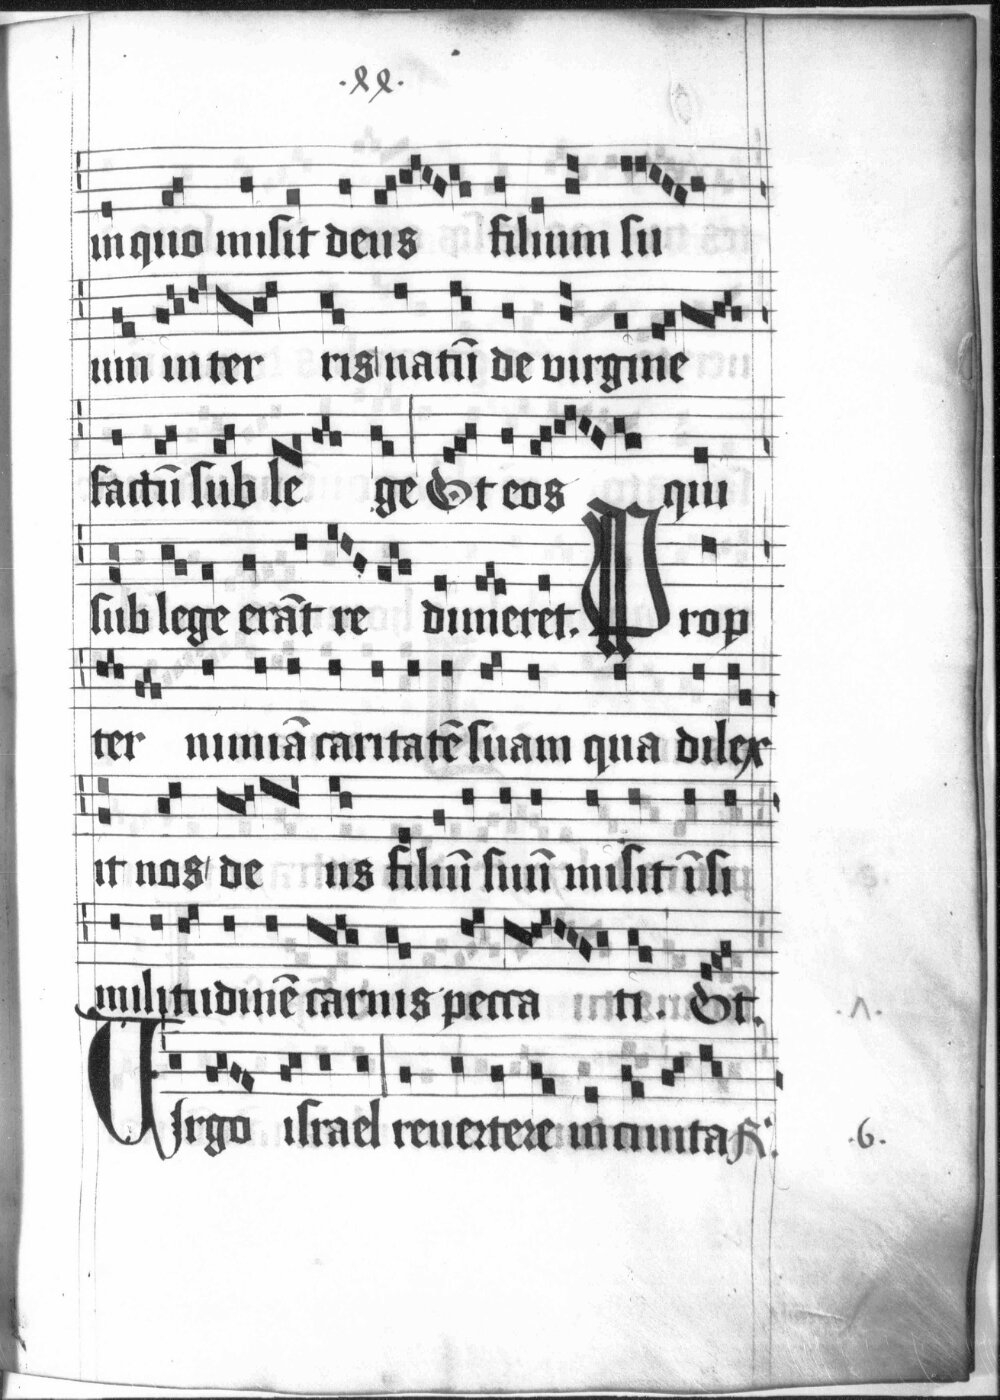 .xx.
in quo misit deus filium su
um in ter ris natū de virgine
factū sub le ge Et eos qui
sub lege erāt re dimeret. Prop
ter nimiā caritatē suam qua dilex
it nos de us filiū suū misit ī si
militudinē carnis pecca ti. Et.
.V.
Virgo israel reuertere in ciuita R̄.
.6.